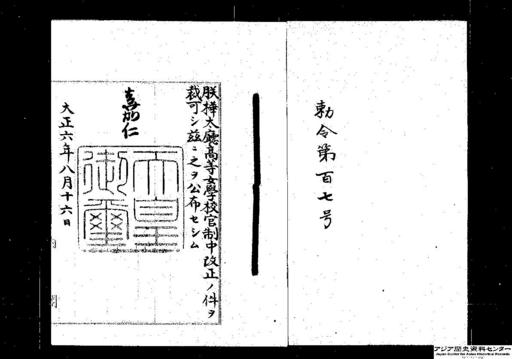 勅令第百七号
朕樺太廳高等女學校官制中改正ノ件ヲ
裁可シ茲ニ之ヲ公布セシム
嘉仁
天皇
御璽
大正六年八月十六日
アジア歴史資料センター
Japan Center for Asian Historical Records